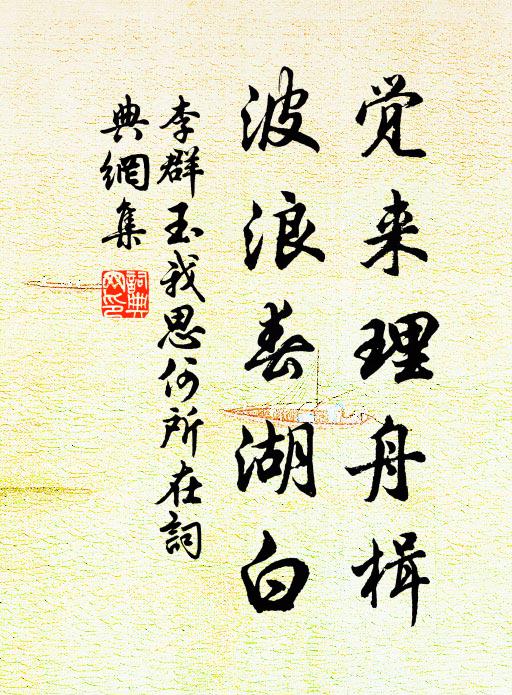 觉来理舟楫
波浪春湖白
李群玉我思何所在詞
典網集
詞典
网印